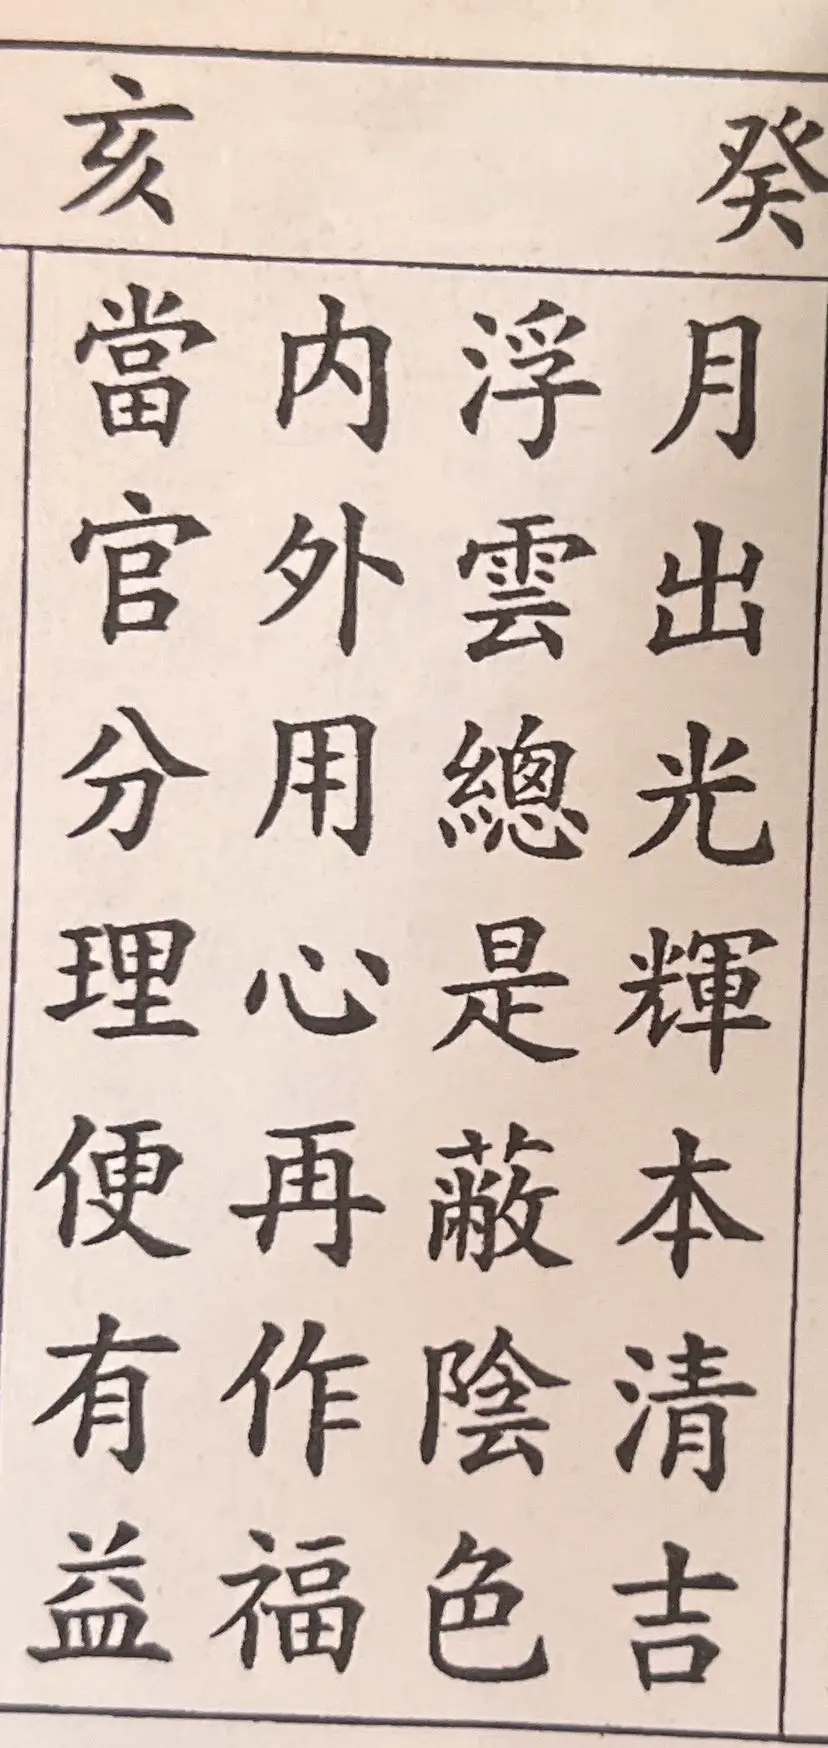 癸亥
月出光輝本清吉
浮雲總是蔽陰色
内外用心再作福
當官分理便有益